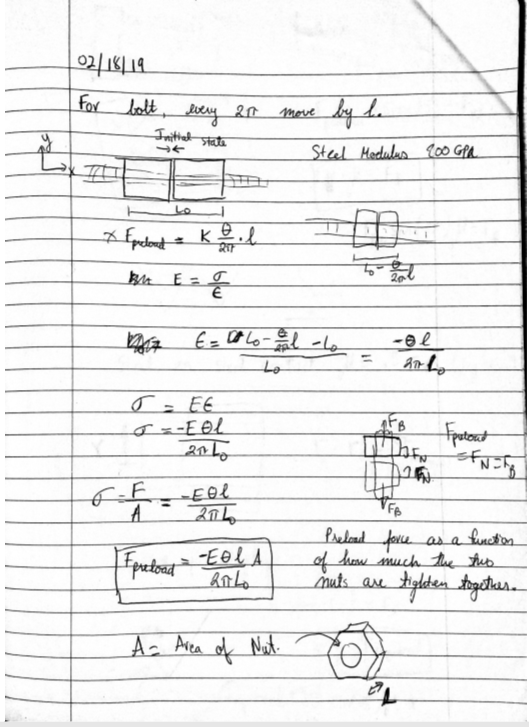 02/18/19
For bolt, every 2π move by l.
Initial state
y
x
Steel Modulus 200 GPa
L₀
F_preload = K θ/2π · l
L₀ - θ/2π l
E = σ/ϵ
ϵ = L₀ - θ/2π l - L₀ / L₀ = -θl / 2πL₀
σ = Eϵ
σ = -Eθl / 2πL₀
F_B
F_N
F_N
F_B
F_preload
= F_N = F_B
σ = F/A = -Eθl / 2πL₀
F_preload = -Eθl / 2πL₀ A
Preload force as a function
of how much the two
nuts are tighten together.
A = Area of Nut.